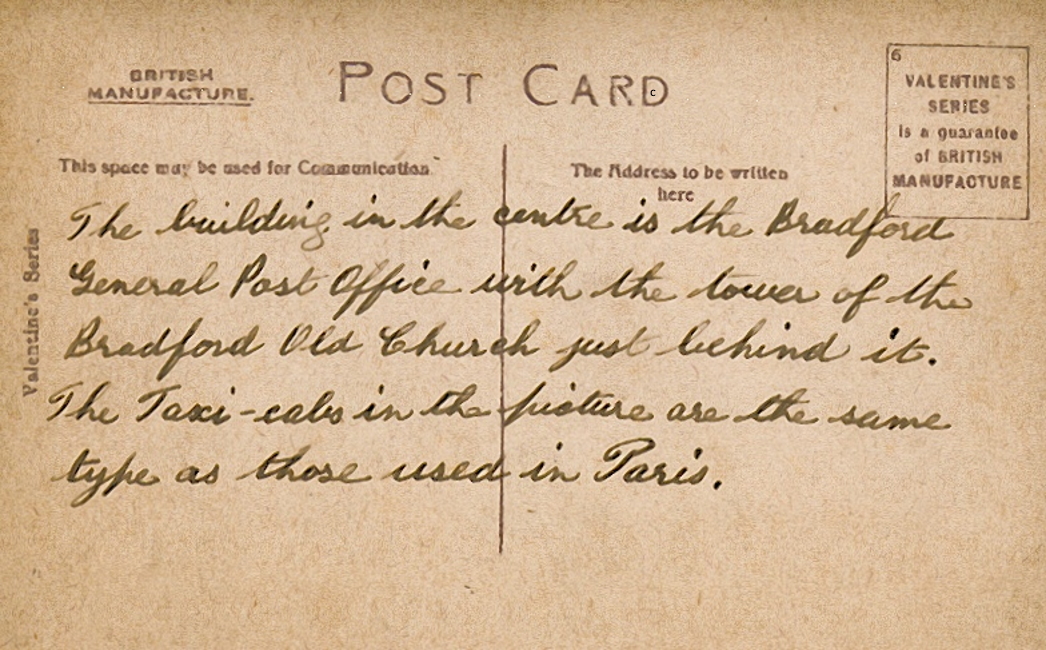 BRITISH
MANUFACTURE.
POST CARD
c
6
VALENTINE'S
SERIES
is a guarantee
of BRITISH
MANUFACTURE
This space may be used for Communication.
The Address to be written
here
Valentine's Series
The building in the centre is the Bradford
General Post Office with the tower of the
Bradford Old Church just behind it.
The Taxi-cabs in the picture are the same
type as those used in Paris.